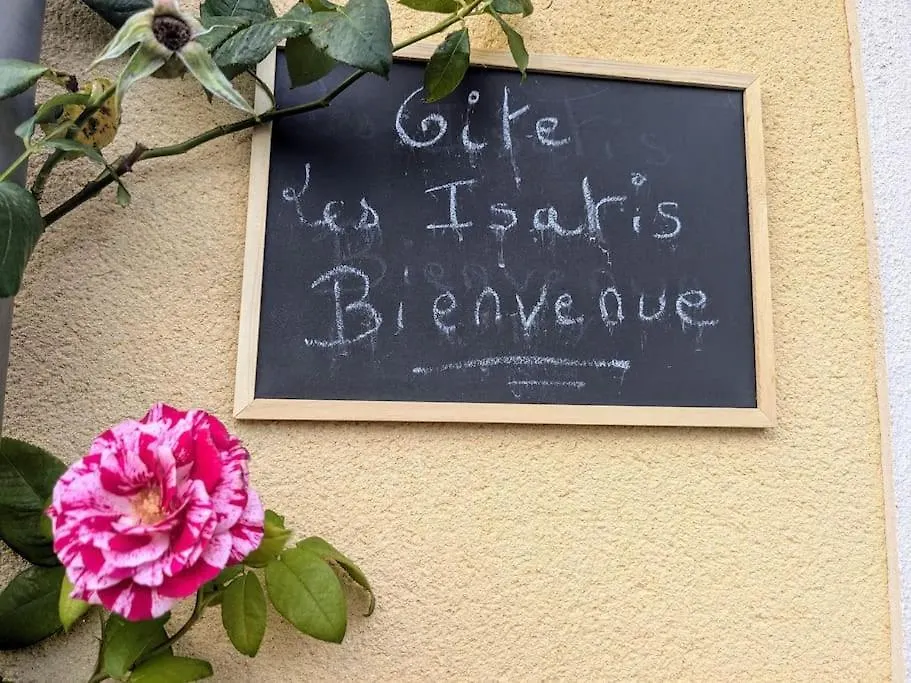 Gite
Les Isatis
Bienvenue